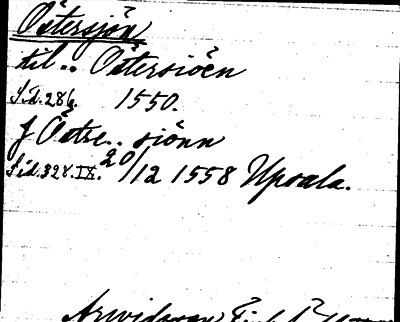 Östersjön
til.. Östersiöen
Sid. 286. 1550.
f Östre.. siönn
Sid. 328. IX. 20/12 1558 Upsala.
Arwidsson